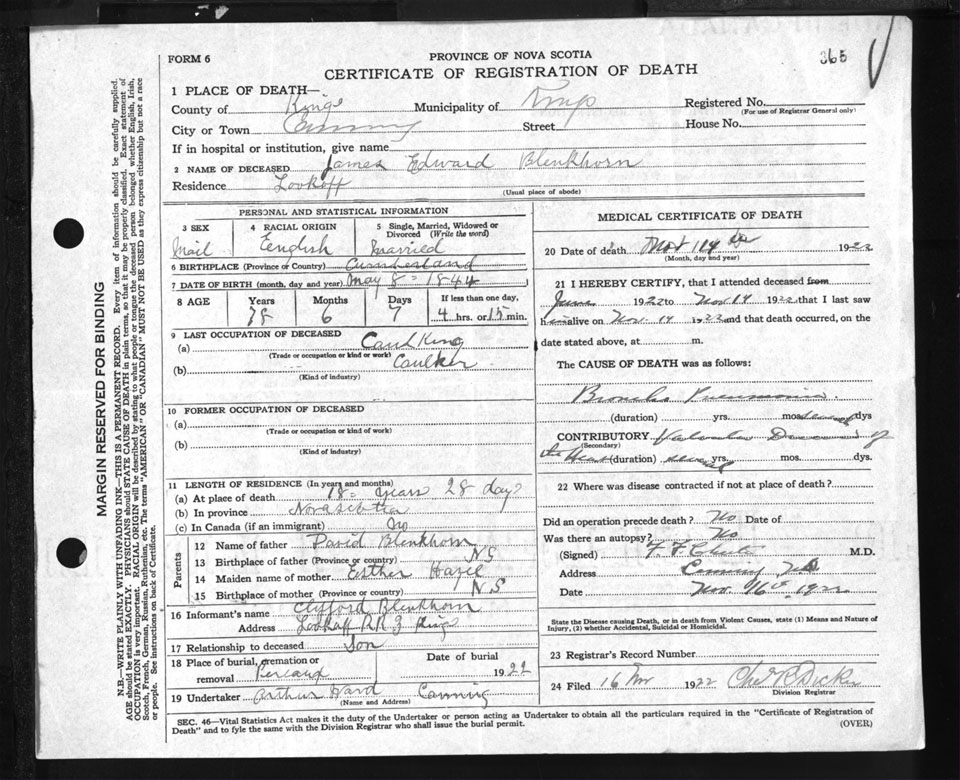 365
FORM 6
PROVINCE OF NOVA SCOTIA
CERTIFICATE OF REGISTRATION OF DEATH
1 PLACE OF DEATH—
County of Kings Municipality of Registered No.
(For use of Registrar General only)
City or Town Canning Street House No.
If in hospital or institution, give name
2 NAME OF DECEASED James Edward Blenkhorn
Residence Lookoff
(Usual place of abode)
PERSONAL AND STATISTICAL INFORMATION
3 SEX
Mail
4 RACIAL ORIGIN
English
5 Single, Married, Widowed or Divorced (Write the word)
Married
6 BIRTHPLACE (Province or Country) Cumberland
7 DATE OF BIRTH (month, day and year) May 8 = 1844
8 AGE Years Months Days If less than one day,
78 6 7 4 hrs. or 15 min.
9 LAST OCCUPATION OF DECEASED
(a) Caulking
(Trade or occupation or kind or work)
(b) Caulker
(Kind of industry)
10 FORMER OCCUPATION OF DECEASED
(a)
(Trade or occupation or kind of work)
(b)
(Kind of industry)
11 LENGTH OF RESIDENCE (In years and months)
(a) At place of death 18 = years 28 days
(b) In province Novascotia
(c) In Canada (if an immigrant) No
Parents
12 Name of father David Blenkhorn
13 Birthplace of father (Province or country) N S
14 Maiden name of mother Esther Hazel
15 Birthplace of mother (Province or country) N S
16 Informant's name Clifford Blenkhorn
Address Lookoff RR 3 Kings
17 Relationship to deceased Son
18 Place of burial, cremation or removal Pereaux Date of burial 1922
19 Undertaker Arthur Ward Canning
(Name and Address)
MEDICAL CERTIFICATE OF DEATH
20 Date of death Nov 14 1922
(Month, day and year)
21 I HEREBY CERTIFY, that I attended deceased from
June 1922 to Nov 14 1922 that I last saw
him alive on Nov. 14 1922 and that death occurred, on
date stated above, at m.
The CAUSE OF DEATH was as follows:
Broncho Pneumonia.
(duration) yrs. mos. dys
CONTRIBUTORY Valvular Disease of
(Secondary)
the Heart (duration) several yrs. mos. dys.
22 Where was disease contracted if not at place of death?
Did an operation precede death? No Date of
Was there an autopsy? No
(Signed) M.D.
Address Canning N.S.
Date Nov. 16th 1922
State the Disease causing Death, or in death from Violent Causes, state (1) Means and Nature of
Injury, (2) whether Accidental, Suicidal or Homicidal.
23 Registrar's Record Number
24 Filed 16 Nov 1922 Chas R Dickie
Division Registrar
SEC. 46—Vital Statistics Act makes it the duty of the Undertaker or person acting as Undertaker to obtain all the particulars required in the "Certificate of Registration of
Death" and to fyle the same with the Division Registrar who shall issue the burial permit.
(OVER)
MARGIN RESERVED FOR BINDING
N.B.—WRITE PLAINLY WITH UNFADING INK—THIS IS A PERMANENT RECORD. Every item of information should be carefully supplied.
AGE should be stated EXACTLY. PHYSICIANS should STATE CAUSE OF DEATH in plain terms, so that it may be properly classified. Exact statement of
OCCUPATION is very important. RACIAL ORIGIN will be described by stating to what people or tongue the deceased person belonged whether English, Irish,
Scotch, French, German, Russian, Ruthenian, etc. The terms "AMERICAN" or "CANADIAN" MUST NOT BE USED as they express citizenship but not a race
or people. See instructions on back of Certificate.